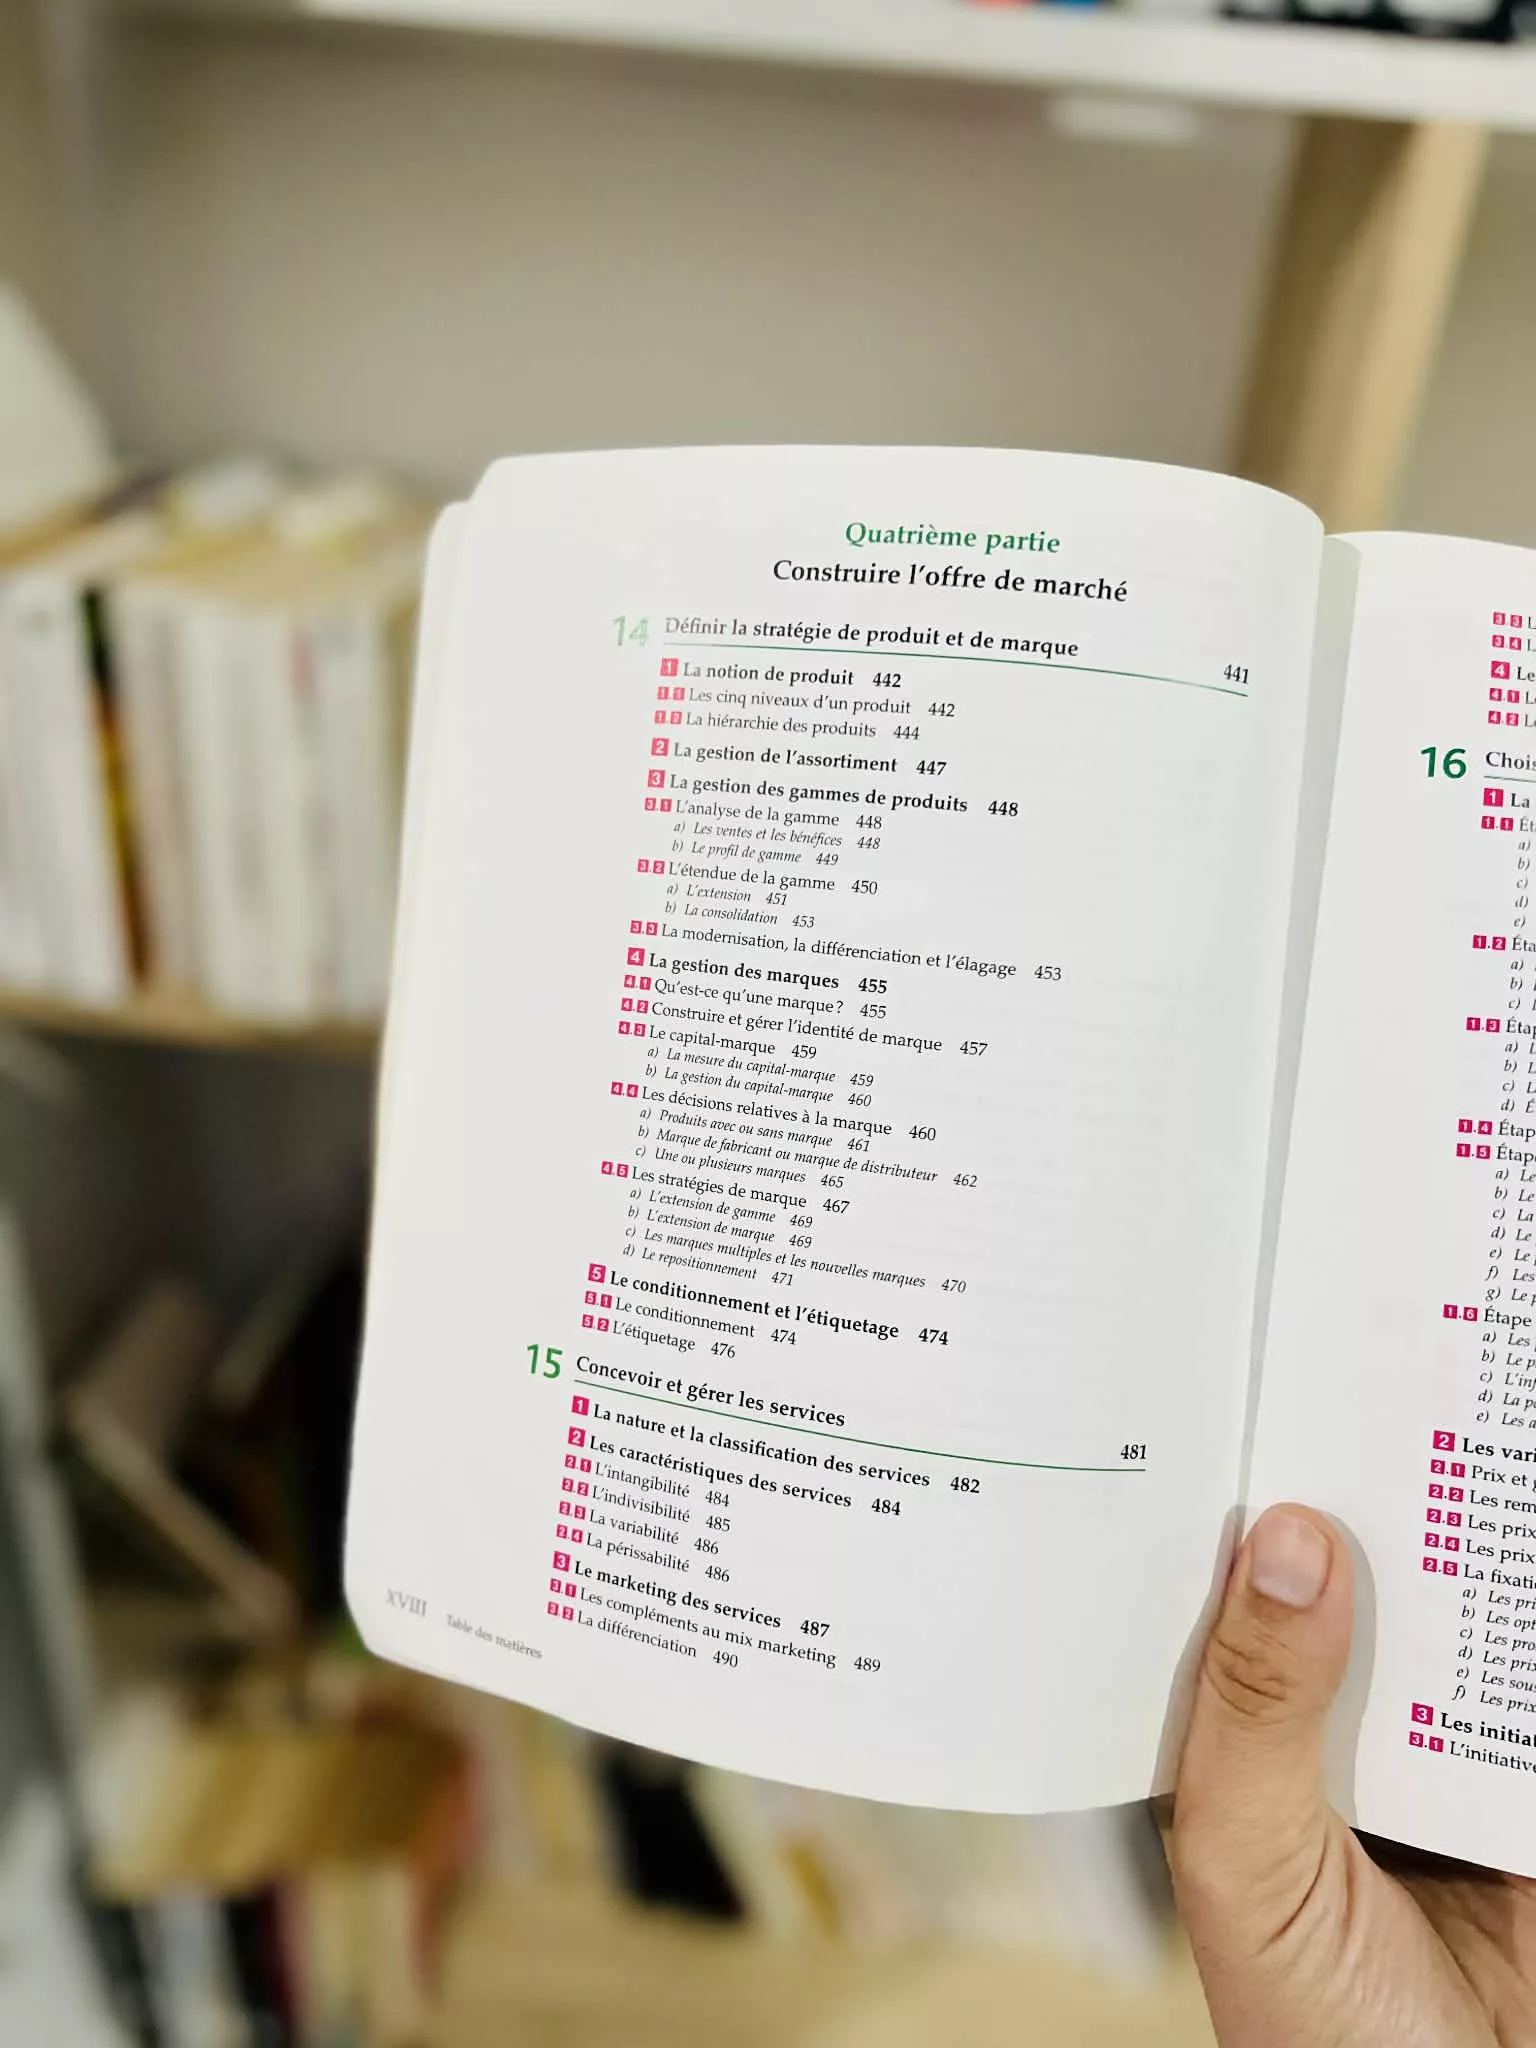 Quatrième partie
Construire l'offre de marché
14 Définir la stratégie de produit et de marque 441
1 La notion de produit 442
1.1 Les cinq niveaux d'un produit 442
1.2 La hiérarchie des produits 444
2 La gestion de l'assortiment 447
3 La gestion des gammes de produits 448
3.1 L'analyse de la gamme 448
a) Les ventes et les bénéfices 448
b) Le profil de gamme 449
3.2 L'étendue de la gamme 450
a) L'extension 451
b) La consolidation 453
3.3 La modernisation, la différenciation et l'élagage 453
4 La gestion des marques 455
4.1 Qu'est-ce qu'une marque ? 455
4.2 Construire et gérer l'identité de marque 457
4.3 Le capital-marque 459
a) La mesure du capital-marque 459
b) La gestion du capital-marque 460
4.4 Les décisions relatives à la marque 460
a) Produits avec ou sans marque 461
b) Marque de fabricant ou marque de distributeur 462
c) Une ou plusieurs marques 465
4.5 Les stratégies de marque 467
a) L'extension de gamme 469
b) L'extension de marque 469
c) Les marques multiples et les nouvelles marques 470
d) Le repositionnement 471
5 Le conditionnement et l'étiquetage 474
5.1 Le conditionnement 474
5.2 L'étiquetage 476
15 Concevoir et gérer les services 481
1 La nature et la classification des services 482
2 Les caractéristiques des services 484
2.1 L'intangibilité 484
2.2 L'indivisibilité 485
2.3 La variabilité 486
2.4 La périssabilité 486
3 Le marketing des services 487
3.1 Les compléments au mix marketing 489
3.2 La différenciation 490
XVIII Table des matières
3.3
3.4
4 Le
4.1
4.2
16
1 La
1.1
a)
b)
c)
d)
e)
1.2
a)
b)
c)
1.3
a)
b)
c)
d)
1.4
1.5
a) Le
b) Le
c) La
d) Le
e) Le
f) Les
g) Le
1.6 Étape
a) Les
b) Le
c)
d) La
e) Les
2 Les
2.1 Prix et
2.2 Les
2.3 Les prix
2.4 Les prix
2.5 La
a) Les
b) Les
c) Les
d) Les
e) Les
f) Les prix
3 Les
3.1 L'initiative